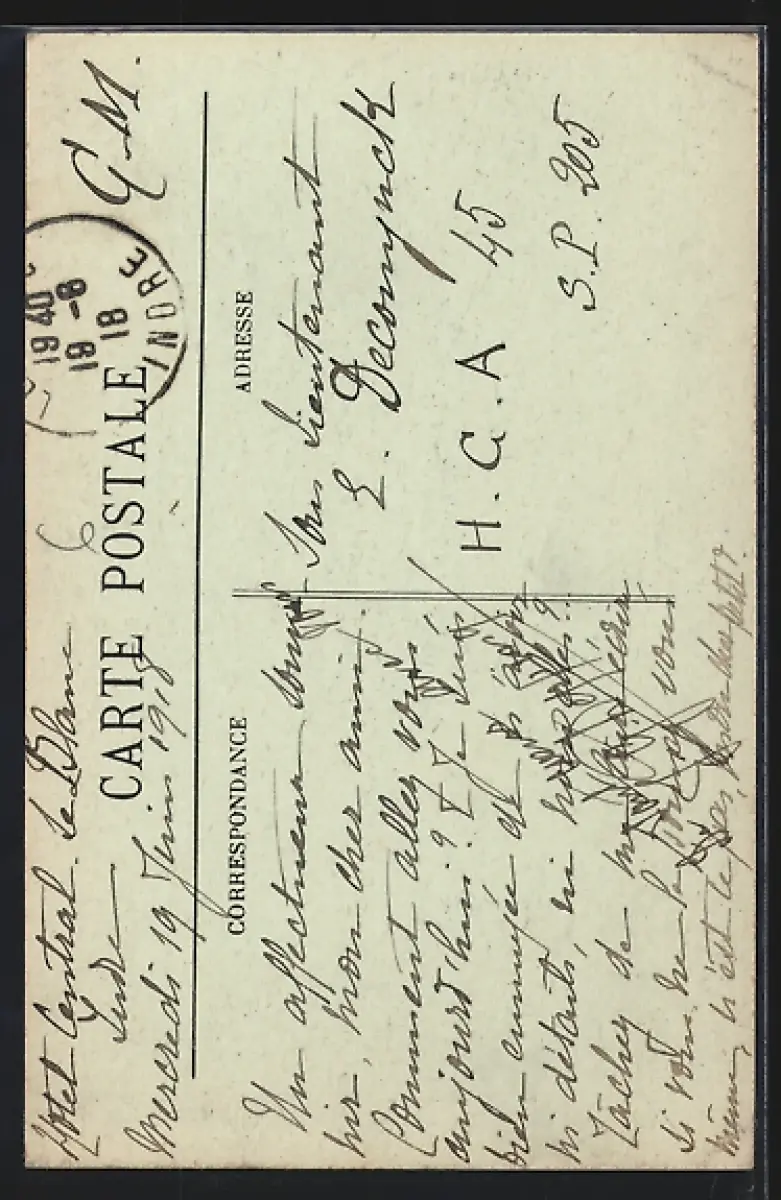 Hotel Central. Le Blanc
Indre
Mercredi 19 Juin 1918
G.M.
19 40
19 - 6
18
INDRE
CARTE POSTALE
CORRESPONDANCE
ADRESSE
Un affectueux
mon cher ami.
Comment allez vous
aujourd'hui? Je suis
bien ennuyée de
ni détails, ni
Tâchez de
si vous ne le vous
même, n'est ce pas, cher petit?
Sous Lieutenant
E. Deconynck
H.C.A 45
S.P. 205